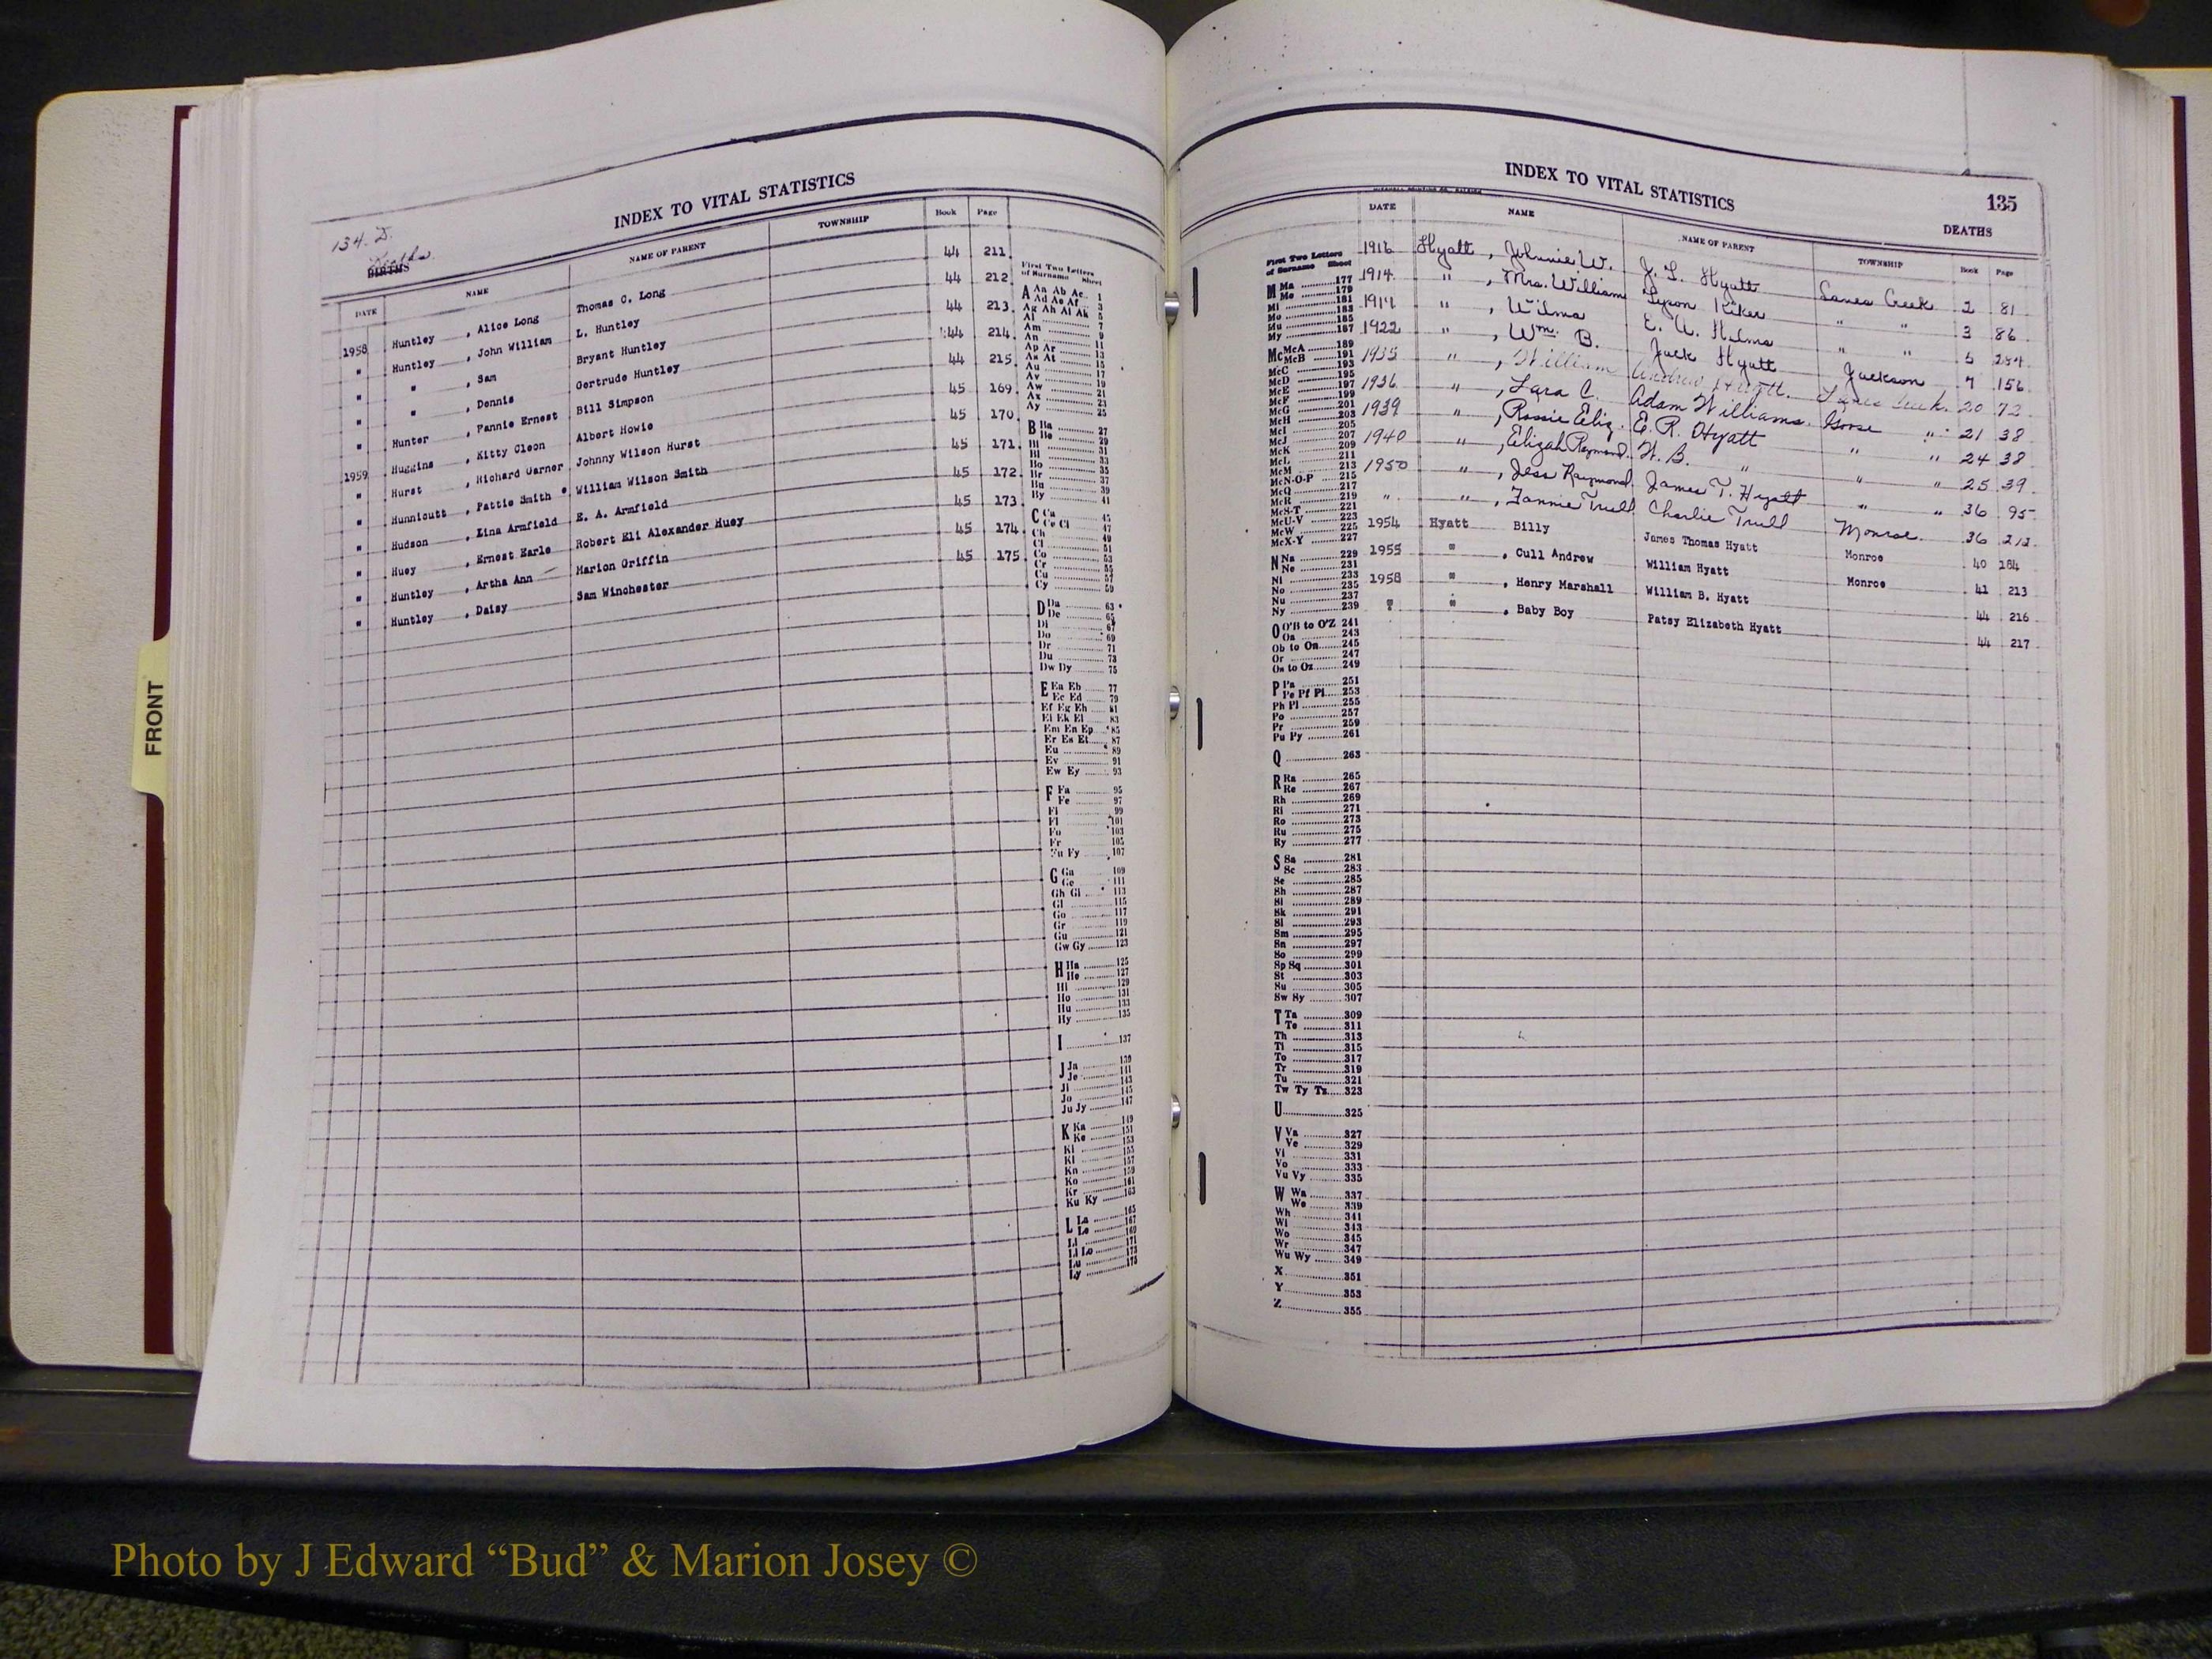 FRONT
134-D.
INDEX TO VITAL STATISTICS
Deaths
BIRTHS
DATE NAME NAME OF PARENT TOWNSHIP Book Page
1958 Huntley , Alice Long Thomas C. Long 44 211
" Huntley , John William L. Huntley 44 212
" " , Sam Bryant Huntley 44 213
" " , Dennis Gertrude Huntley 44 214
" Hunter , Fannie Ernest Bill Simpson 44 215
1959 Huggins , Kitty Cleon Albert Howie 45 169
" Hurst , Richard Garner Johnny Wilson Hurst 45 170
" Hunnicutt , Pattie Smith William Wilson Smith 45 171
" Hudson , Lina Armfield E. A. Armfield 45 172
" Huey , Ernest Earle Robert Eli Alexander Huey 45 173
" Huntley , Artha Ann Marion Griffin 45 174
" Huntley , Daisy Sam Winchester 45 175
First Two Letters
of Surname Sheet
A An Ab Ac 1
Ad Ae Af 3
Ag Ah Ai Ak 5
Al 7
Am 9
An 11
Ap Ar 13
As At 15
Au 17
Av 19
Aw 21
Ax 23
Ay 25
B Ba 27
Be 29
Bi 31
Bl 33
Bo 35
Br 37
Bu 39
By 41
C Ca 45
Ce Ci 47
Ch 49
Cl 51
Co 53
Cr 55
Cu 57
Cy 59
D Da 63
De 65
Di 67
Do 69
Dr 71
Du 73
Dw Dy 75
E Ea Eb 77
Ec Ed 79
Ef Eg Eh 81
Ei Ek El 83
Em En Ep 85
Er Es Et 87
Eu 89
Ev 91
Ew Ey 93
F Fa 95
Fe 97
Fi 99
Fl 101
Fo 103
Fr 105
Fu Fy 107
G Ga 109
Ge 111
Gh Gi 113
Gl 115
Go 117
Gr 119
Gu 121
Gw Gy 123
H Ha 125
He 127
Hi 129
Ho 131
Hu 133
Hy 135
I 137
J Ja 139
Je 141
Ji 143
Jo 145
Ju Jy 147
K Ka 149
Ke 151
Ki 153
Kl 155
Kn 157
Ko 159
Kr 161
Ku Ky 163
L La 165
Le 167
Li 169
Ll Lo 171
Lu 173
Ly 175
INDEX TO VITAL STATISTICS
135
DEATHS
DATE NAME NAME OF PARENT TOWNSHIP Book Page
1916 Hyatt , Johnnie W. J. L. Hyatt Lanes Creek 2 81
1914 " , Mrs. William Tyson Kiker " " 3 86
1919 " , Wilma E. A. Helms " " 5 254
1922 " , Wm. B. Jack Hyatt Jackson 7 156
1935 " , William Andrew Hyatt. Lanes Creek. 20 72
1936 " , Lara C. Adam Williams. Goose " 21 38
1939 " , Rossie Eliz. E. R. Hyatt " " 24 38
1940 " , Elizah Raymond. W. B. " " " 25 39
1950 " , Jess Raymond James T. Hyatt " " 36 95
" " , Fannie Trull Charlie Trull Monroe 36 212
1954 Hyatt Billy James Thomas Hyatt Monroe 40 184
1955 " , Cull Andrew William Hyatt Monroe 41 213
1958 " , Henry Marshall William B. Hyatt 44 216
" " , Baby Boy Patsy Elizabeth Hyatt 44 217
First Two Letters
of Surname Sheet
M Ma 177
Me 179
Mi 181
Mo 183
Mu 185
My 187
Mc McA 189
McB 191
McC 193
McD 195
McE 197
McF 199
McG 201
McH 203
McI 205
McJ 207
McK 209
McL 211
McM 213
McN-O-P 215
McQ 217
McR 219
McS-T 221
McU-V 223
McW 225
McX-Y 227
N Na 229
Ne 231
Ni 233
No 235
Nu 237
Ny 239
O O'B to O'Z 241
Oa 243
Ob to On 245
Or 247
Os to Oz 249
P Pa 251
Pe Pf Pi 253
Ph Pl 255
Po 257
Pr 259
Pu Py 261
Q 263
R Ra 265
Re 267
Rh 269
Ri 271
Ro 273
Ru 275
Ry 277
S Sa 281
Sc 283
Se 285
Sh 287
Si 289
Sk 291
Sl 293
Sm 295
Sn 297
So 299
Sp Sq 301
St 303
Su 305
Sw Sy 307
T Ta 309
Te 311
Th 313
Ti 315
To 317
Tr 319
Tu 321
Tw Ty Tz 323
U 325
V Va 327
Ve 329
Vi 331
Vo 333
Vu Vy 335
W Wa 337
We 339
Wh 341
Wi 343
Wo 345
Wr 347
Wu Wy 349
X 351
Y 353
Z 355
Photo by J Edward “Bud” & Marion Josey ©